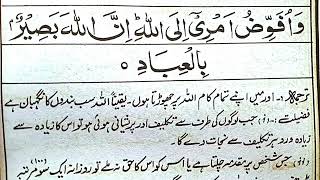 وَأُفَوِّضُ أَمْرِیْ إِلَی اللّٰهِ إِنَّ اللّٰهَ بَصِیْرٌۢ
بِالْعِبَادِ ○
ترجمہ :- اور میں اپنے تمام کام اللہ پر چھوڑتا ہوں۔ یقیناً اللہ سب بندوں کا نگہبان ہے
فضیلت :- جب لوگوں کی طرف سے تکلیف اور پریشانی ہوئی ہو تو اس کا زیادہ سے
زیادہ ورد ہر تکلیف سے نجات دے گا۔
جس شخص پر مقدمہ چلتا ہے یا اس کو اس کا حق نہ ملے تو روزانہ ایک سو مرتبہ (۱۰۰)